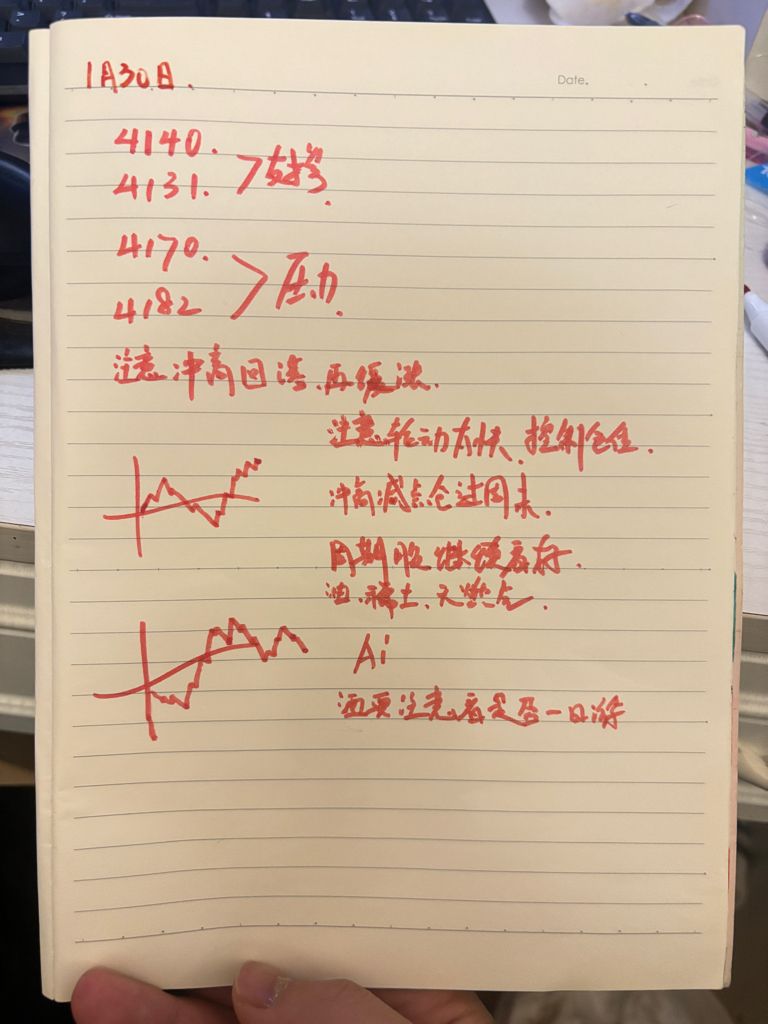 Date.
1月30日.
4140.
4131. >支撑.
4170.
4182 >压力.
注意冲高回落、再缓涨.
注意轮动太快、控制仓位.
冲高减点仓过周末.
周期股继续高存.
油、稀土、天燃气.
Ai
酒要注意、看是否一日游